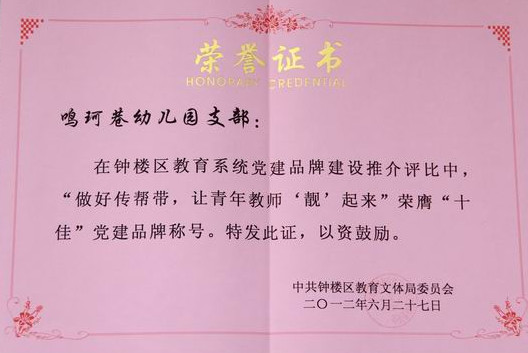 荣誉证书
HONORARY CREDENTIAL
鸣珂巷幼儿园支部：
在钟楼区教育系统党建品牌建设推介评比中，
“做好传帮带，让青年教师‘靓’起来”荣膺“十
佳”党建品牌称号。特发此证，以资鼓励。
中共钟楼区教育文体局委员会
二〇一二年六月二十七日